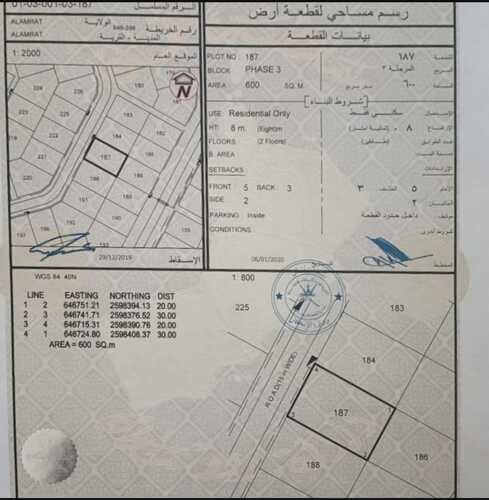 01-03-001-03-187
الرقم المسلسل
رسم مساحي لقطعة أرض
ALAMRAT
الولاية
ALAMRAT
المدينة - القرية
رقم الخريطة
بيانات القطعة
1: 2000
الموقع العام
PLOT NO 187
١٨٧
القطعة
BLOCK PHASE 3
المرحلة ٣
المربع
AREA 600 SQ.M.
متر مربع ٦٠٠
شروط البناء
USE Residential Only
سكني فقط
الاستعمال
HT 8 m. (Eight)m
٨
الارتفاع
FLOORS (2 Floors)
(طابقين)
عدد الطوابق
B. AREA
SETBACKS
الارتدادات
FRONT 5 BACK 3
٣ الخلف ٥
SIDE 2
٢
PARKING Inside
داخل حدود القطعة
CONDITIONS
شروط أخرى
N
179
180
181
184
187
188
190
191
192
193
197
221
222
223
224
225
29/12/2019
الإسقاط
06/01/2020
المخطط
WGS 84 40N
1: 800
LINE EASTING NORTHING DIST
1 2 646751.21 2598394.13 20.00
2 3 646741.71 2598376.52 30.00
3 4 646715.31 2598390.76 20.00
4 1 646724.80 2598408.37 30.00
AREA = 600 SQ.m
225
183
184
ROAD(15 m WIDE)
4
1
187
3
2
186
188